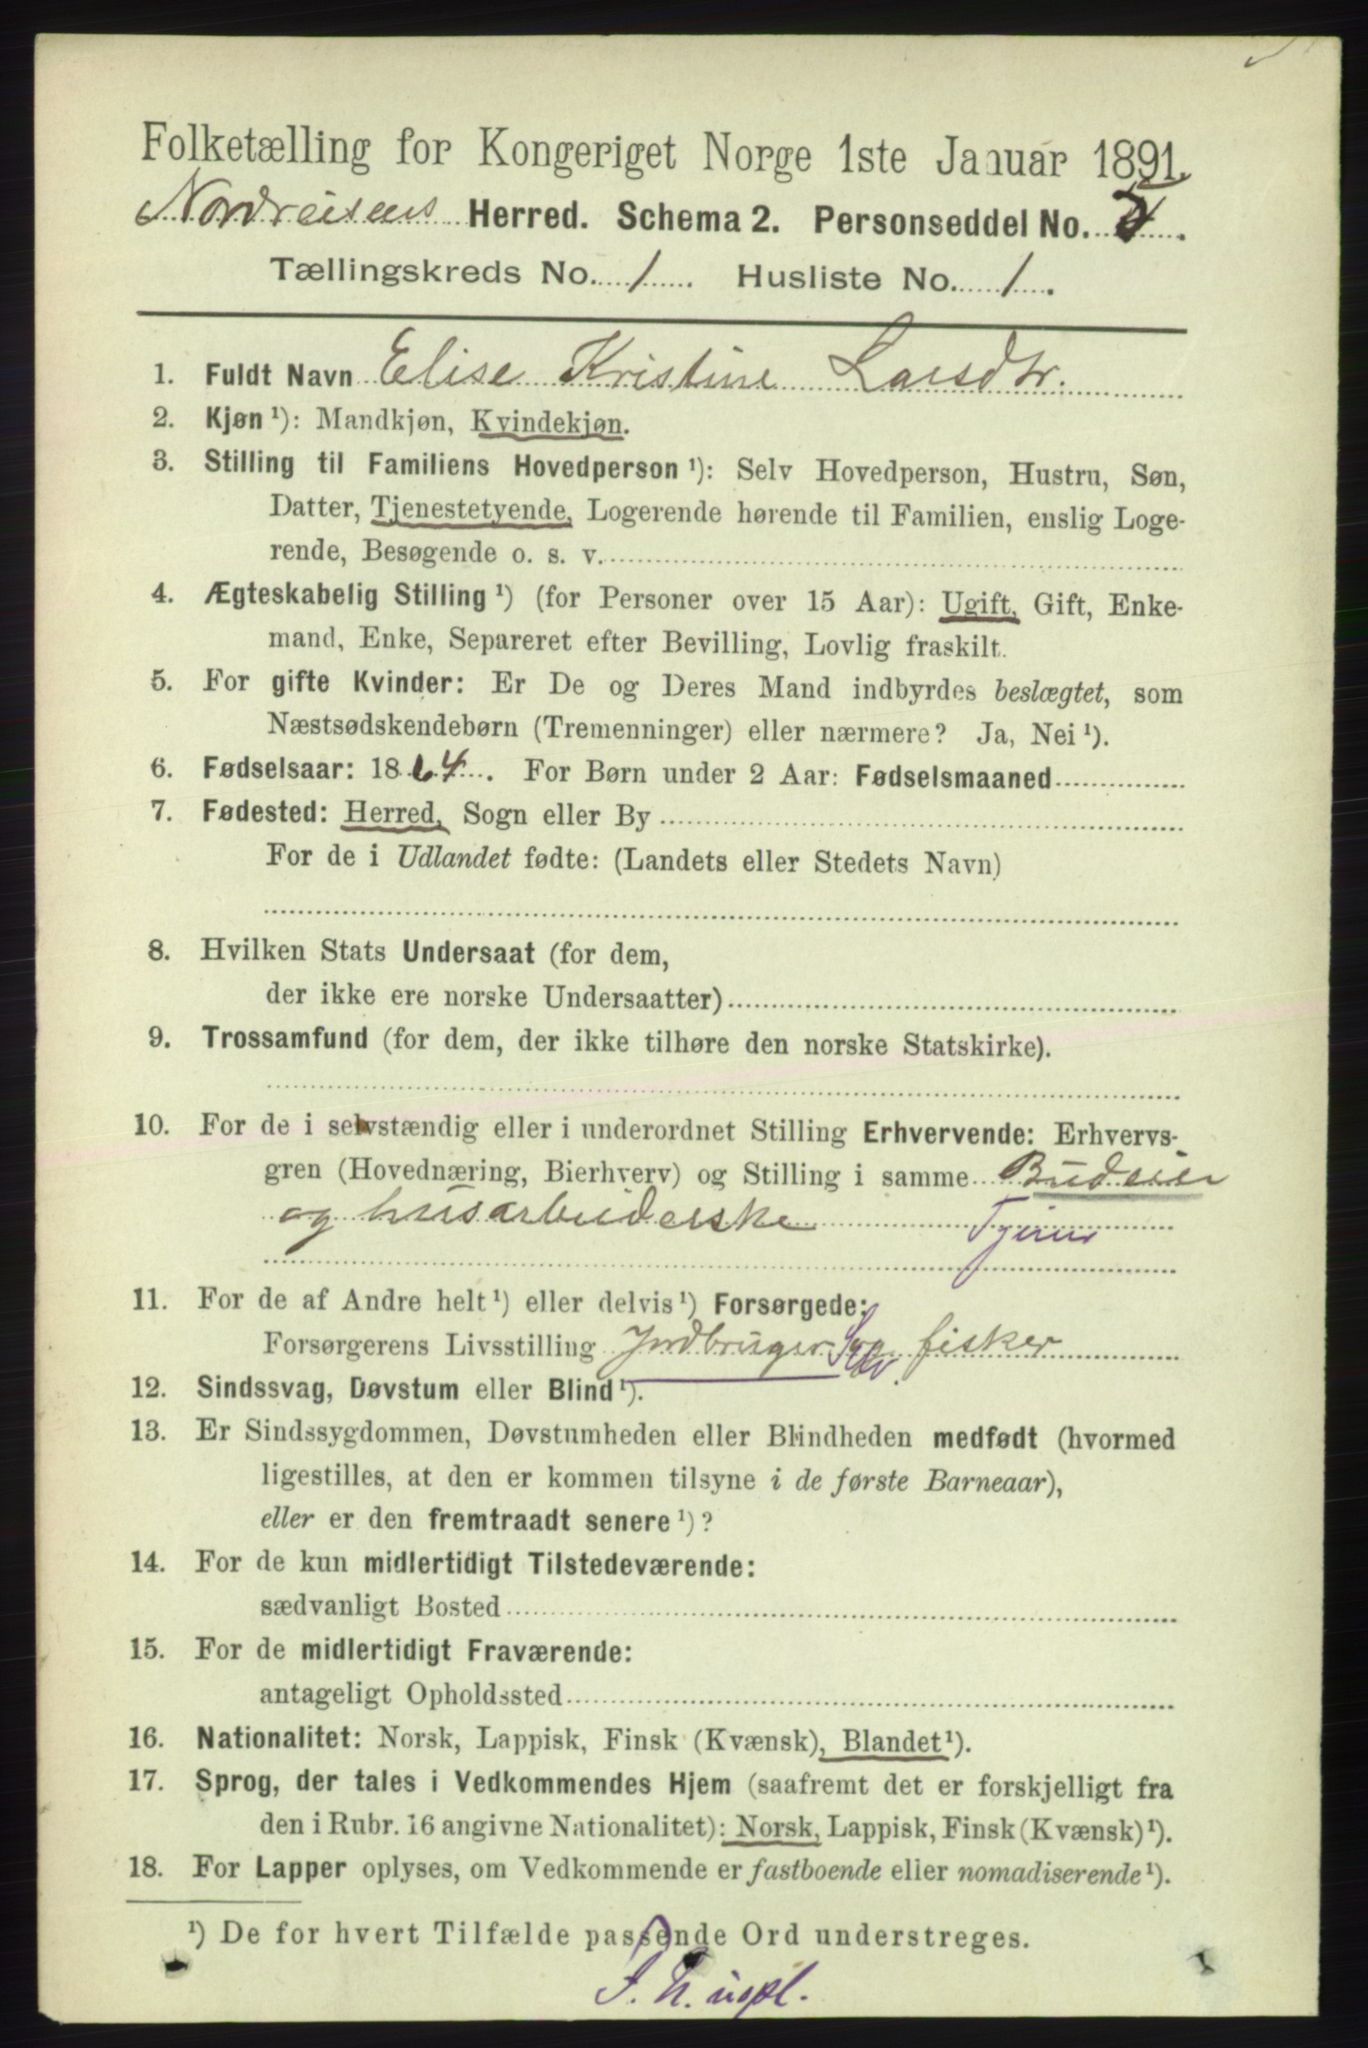 Folketælling for Kongeriget Norge 1ste Januar 1891.
Nordreisens Herred. Schema 2. Personseddel No.
Tællingskreds No. 1 Husliste No. 1.
1. Fuldt Navn Elise Kristine Larsdtr.
2. Kjøn ¹): Mandkjøn, Kvindekjøn.
3. Stilling til Familiens Hovedperson ¹): Selv Hovedperson, Hustru, Søn,
Datter, Tjenestetyende, Logerende hørende til Familien, enslig Loge-
rende, Besøgende o. s. v.
4. Ægteskabelig Stilling ¹) (for Personer over 15 Aar): Ugift, Gift, Enke-
mand, Enke, Separeret efter Bevilling, Lovlig fraskilt.
5. For gifte Kvinder: Er De og Deres Mand indbyrdes beslægtet, som
Næstsødskendebørn (Tremenninger) eller nærmere? Ja, Nei ¹).
6. Fødselsaar: 1864. For Børn under 2 Aar: Fødselsmaaned
7. Fødested: Herred, Sogn eller By
For de i Udlandet fødte: (Landets eller Stedets Navn)
8. Hvilken Stats Undersaat (for dem,
der ikke ere norske Undersaatter)
9. Trossamfund (for dem, der ikke tilhøre den norske Statskirke).
10. For de i selvstændig eller i underordnet Stilling Erhvervende: Erhvervs-
gren (Hovednæring, Bierhverv) og Stilling i samme Budeier
og husarbeiderske
11. For de af Andre helt ¹) eller delvis ¹) Forsørgede:
Forsørgerens Livsstilling Jordbruger og fisker
Selv.
12. Sindssvag, Døvstum eller Blind ¹).
13. Er Sindssygdommen, Døvstumheden eller Blindheden medfødt (hvormed
ligestilles, at den er kommen tilsyne i de første Barneaar),
eller er den fremtraadt senere ¹)?
14. For de kun midlertidigt Tilstedeværende:
sædvanligt Bosted
15. For de midlertidigt Fraværende:
antageligt Opholdssted
16. Nationalitet: Norsk, Lappisk, Finsk (Kvænsk), Blandet ¹).
17. Sprog, der tales i Vedkommendes Hjem (saafremt det er forskjelligt fra
den i Rubr. 16 angivne Nationalitet): Norsk, Lappisk, Finsk (Kvænsk) ¹).
18. For Lapper oplyses, om Vedkommende er fastboende eller nomadiserende ¹).
¹) De for hvert Tilfælde passende Ord understreges.